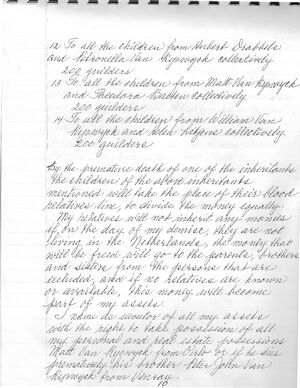 12 To all the children from Hubert Drabbels
and Petronella Van Kipwyck collectively
200 guilders
13 To all the children from Matt Van Kipwyck
and Theodora Batten collectively
200 guilders
14 To all the children from William Van
Kipwyck and Helen collectively
200 guilders
By the premature death of one of the inheritants
the children of the above inheritants
mentioned will take the place of their blood
relatives line, to divide the money equally.
My relatives will not inherit any monies
if, on the day of my demise, they are not
living in the Netherlands, the money that
will be freed will go to the parents, brothers
and sisters from the persons that are
excluded, and if no relatives are known
or available, this money will become
part of my assets.
I name as executor of all my assets
with the right to take possession of all
my personal and real estate possessions
Matt Van Kipwyck from Oirlo or if he dies
prematurely his brother Peter John Van
Kipwyck from Venray.
10